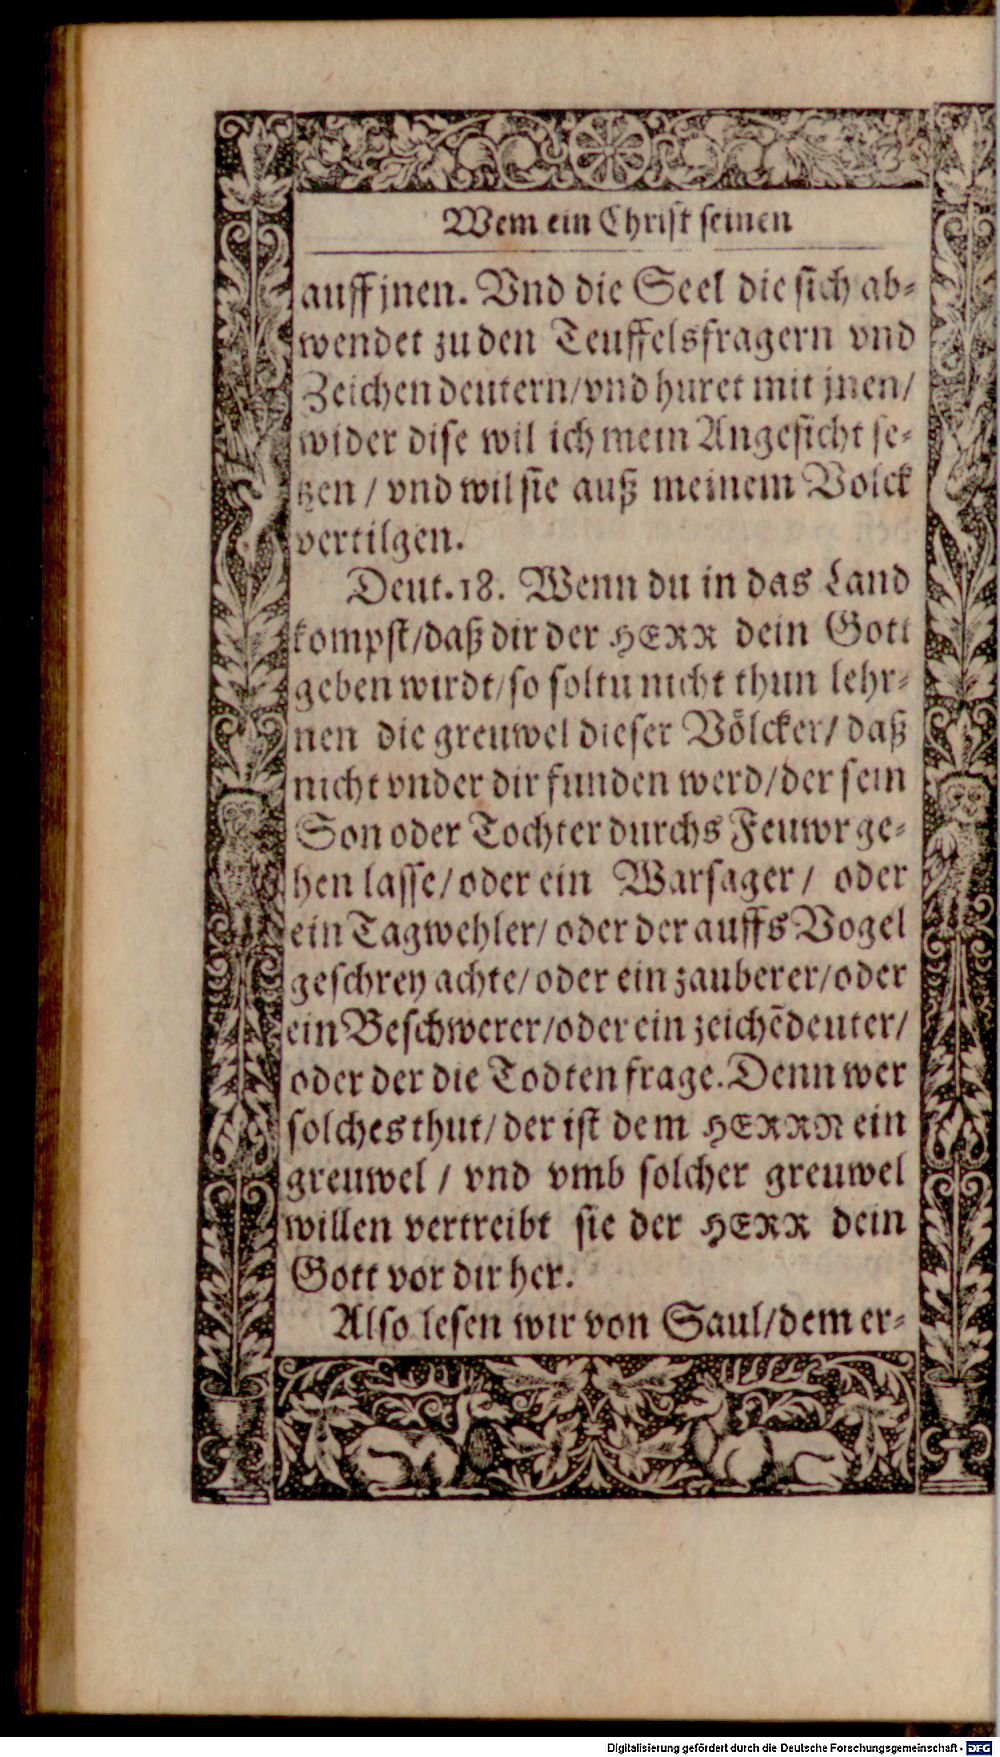 Wem ein Christ seinen
auff jnen. Vnd die Seel die sich ab-
wendet zu den Teuffelsfragern vnd
Zeichen deutern/ vnd huret mit jnen/
wider dise wil ich mein Angesicht se-
tzen / vnd wil sie auß meinem Volck
vertilgen.
Deut. 18. Wenn du in das Land
kompst/ daß dir der HERR dein Gott
geben wirdt/ so soltu nicht thun lehr-
nen die greuwel dieser Völcker/ daß
nicht vnder dir funden werd/ der sein
Son oder Tochter durchs Feuwr ge-
hen lasse/ oder ein Warsager / oder
ein Tagwehler/ oder der auffs Vogel
geschrey achte/ oder ein zauberer/ oder
ein Beschwerer/ oder ein zeichẽdeuter/
oder der die Todten frage. Denn wer
solches thut/ der ist dem HERRN ein
greuwel / vnd vmb solcher greuwel
willen vertreibt sie der HERR dein
Gott vor dir her.
Also lesen wir von Saul/ dem er-
Digitalisierung gefördert durch die Deutsche Forschungsgemeinschaft - DFG